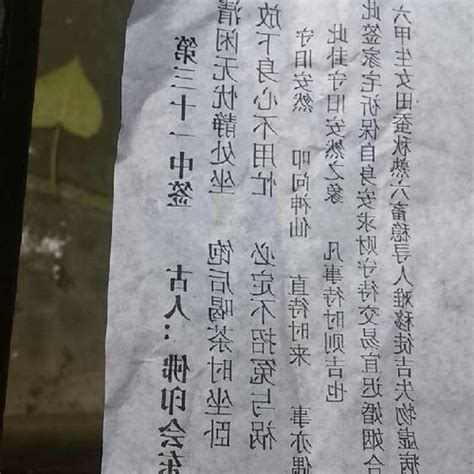 第三十一中签 古人：佛印会东
清闲无忧静处坐 饱后喝茶时坐卧
放下身心不用忙 必定不招冤与祸
守旧安然 叩问神仙 直待时来 事亦偶
此卦守旧安然之象 凡事待时则吉也
此签家宅祈保自身安求财守待交易宜迟婚姻合
六甲生女田蚕秋熟六畜稳寻人难移徙吉失物虚病